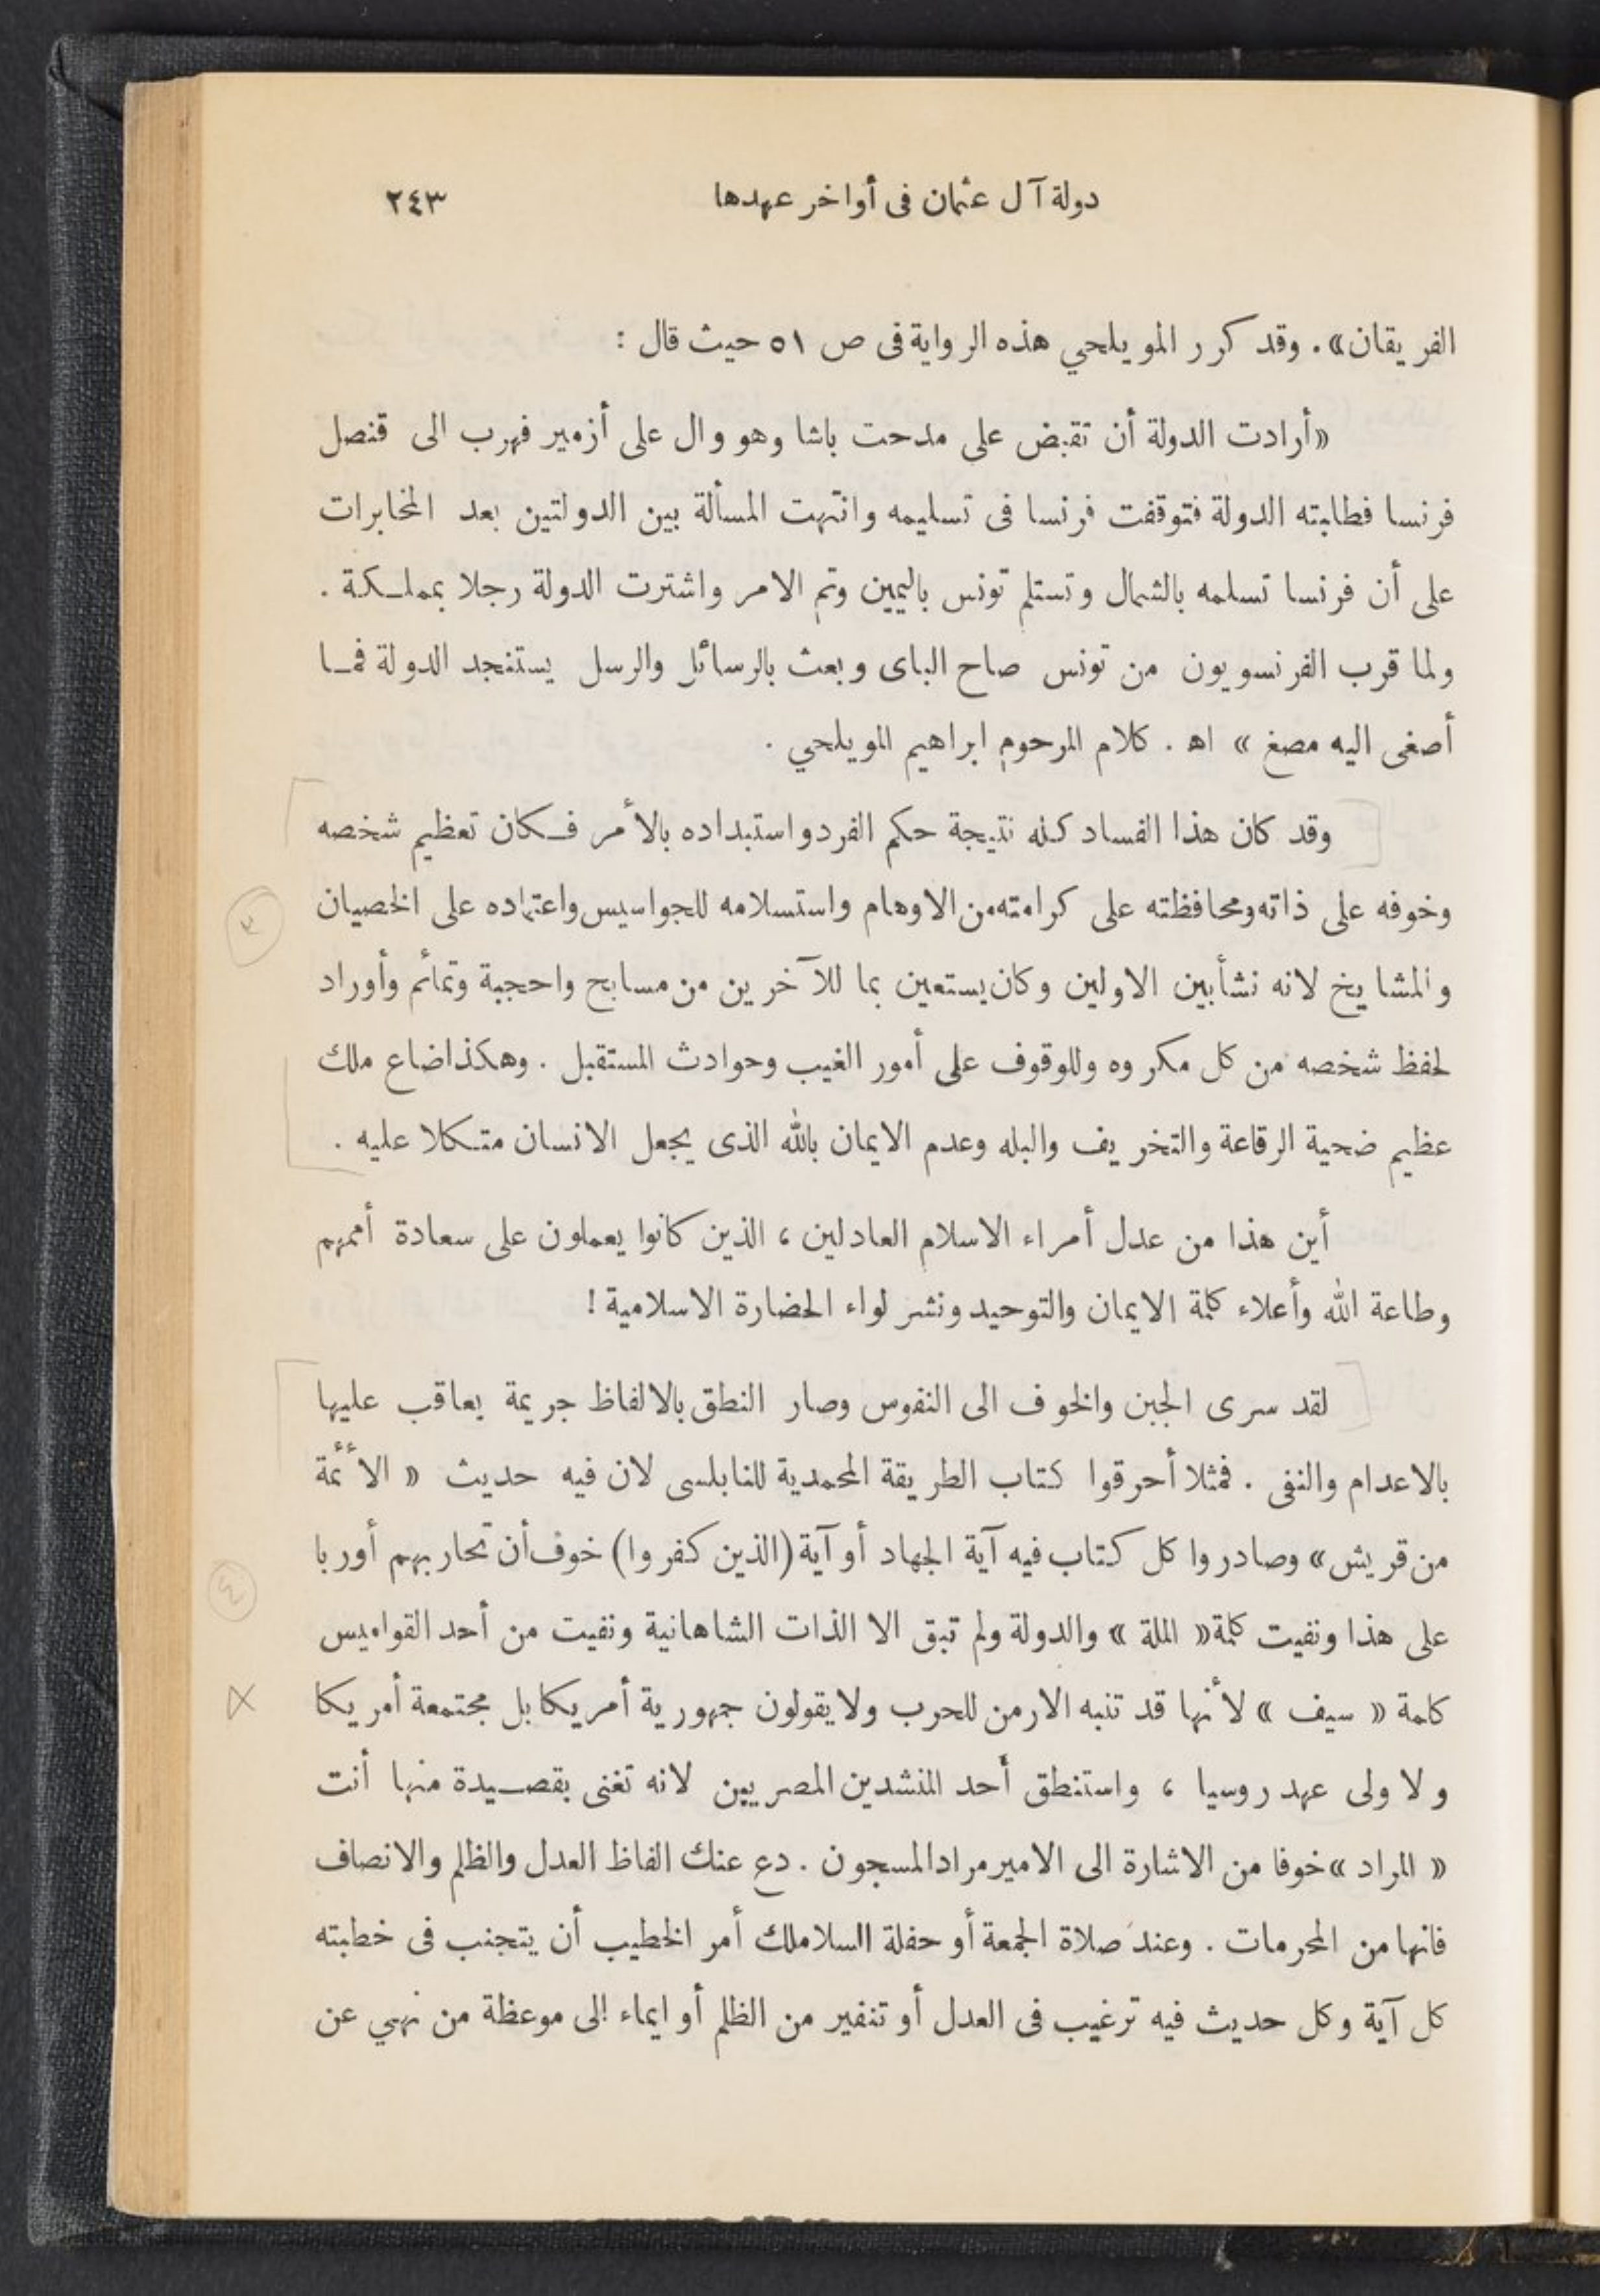 دولة آل عثمان فى أواخر عهدها ٢٤٣
الفريقان» . وقد كرر المويلحي هذه الرواية فى ص ٥١ حيث قال :
«أرادت الدولة أن تقبض على مدحت باشا وهو وال على أزمير فهرب الى قنصل
فرنسا فطلبته الدولة فتوقفت فرنسا فى تسليمه وانتهت المسألة بين الدولتين بعد المخابرات
على أن فرنسا تسلمه بالشمال وتستلم تونس باليمين وتم الامر واشترت الدولة رجلا بمملكة .
ولما قرب الفرنسويون من تونس صاح الباى وبعث بالرسائل والرسل يستنجد الدولة فما
أصغى اليه مصغ » اه . كلام المرحوم ابراهيم المويلحي .
وقد كان هذا الفساد كله نتيجة حكم الفرد واستبداده بالأمر فكان تعظيم شخصه
وخوفه على ذاته ومحافظته على كرامته من الاوهام واستسلامه للجواسيس واعتماده على الخصيان
والمشايخ لانه نشأ بين الاولين وكان يستعين بما للآخرين من مسابح واحجبة وتمائم وأوراد
لحفظ شخصه من كل مكروه وللوقوف على أمور الغيب وحوادث المستقبل . وهكذا ضاع ملك
عظيم ضحية الرقاعة والتخريف والبله وعدم الايمان بالله الذى يجعل الانسان متكلا عليه .
أين هذا من عدل أمراء الاسلام العادلين ، الذين كانوا يعملون على سعادة أممهم
وطاعة الله وأعلاء كلمة الايمان والتوحيد ونشر لواء الحضارة الاسلامية !
لقد سرى الجبن والخوف الى النفوس وصار النطق بالالفاظ جريمة يعاقب عليها
بالاعدام والنفى . فمثلا أحرقوا كتاب الطريقة المحمدية للنابلسى لان فيه حديث « الأئمة
من قريش » وصادروا كل كتاب فيه آية الجهاد أو آية (الذين كفروا) خوف أن تحاربهم أوربا
على هذا ونفيت كلمة « الملة » والدولة ولم تبق الا الذات الشاهانية ونفيت من أحد القواميس
كلمة « سيف » لأنها قد تنبه الارمن للحرب ولا يقولون جمهورية أمريكا بل مجتمعة أمريكا
ولا ولى عهد روسيا ، واستنطق أحد المنشدين المصريين لانه تغنى بقصيدة منها أنت
« المراد » خوفا من الاشارة الى الامير مراد المسجون . دع عنك الفاظ العدل والظلم والانصاف
فانها من المحرمات . وعند صلاة الجمعة أو حفلة السلاملك أمر الخطيب أن يتجنب فى خطبته
كل آية وكل حديث فيه ترغيب فى العدل أو تنفير من الظلم أو ايماء الى موعظة من نهي عن